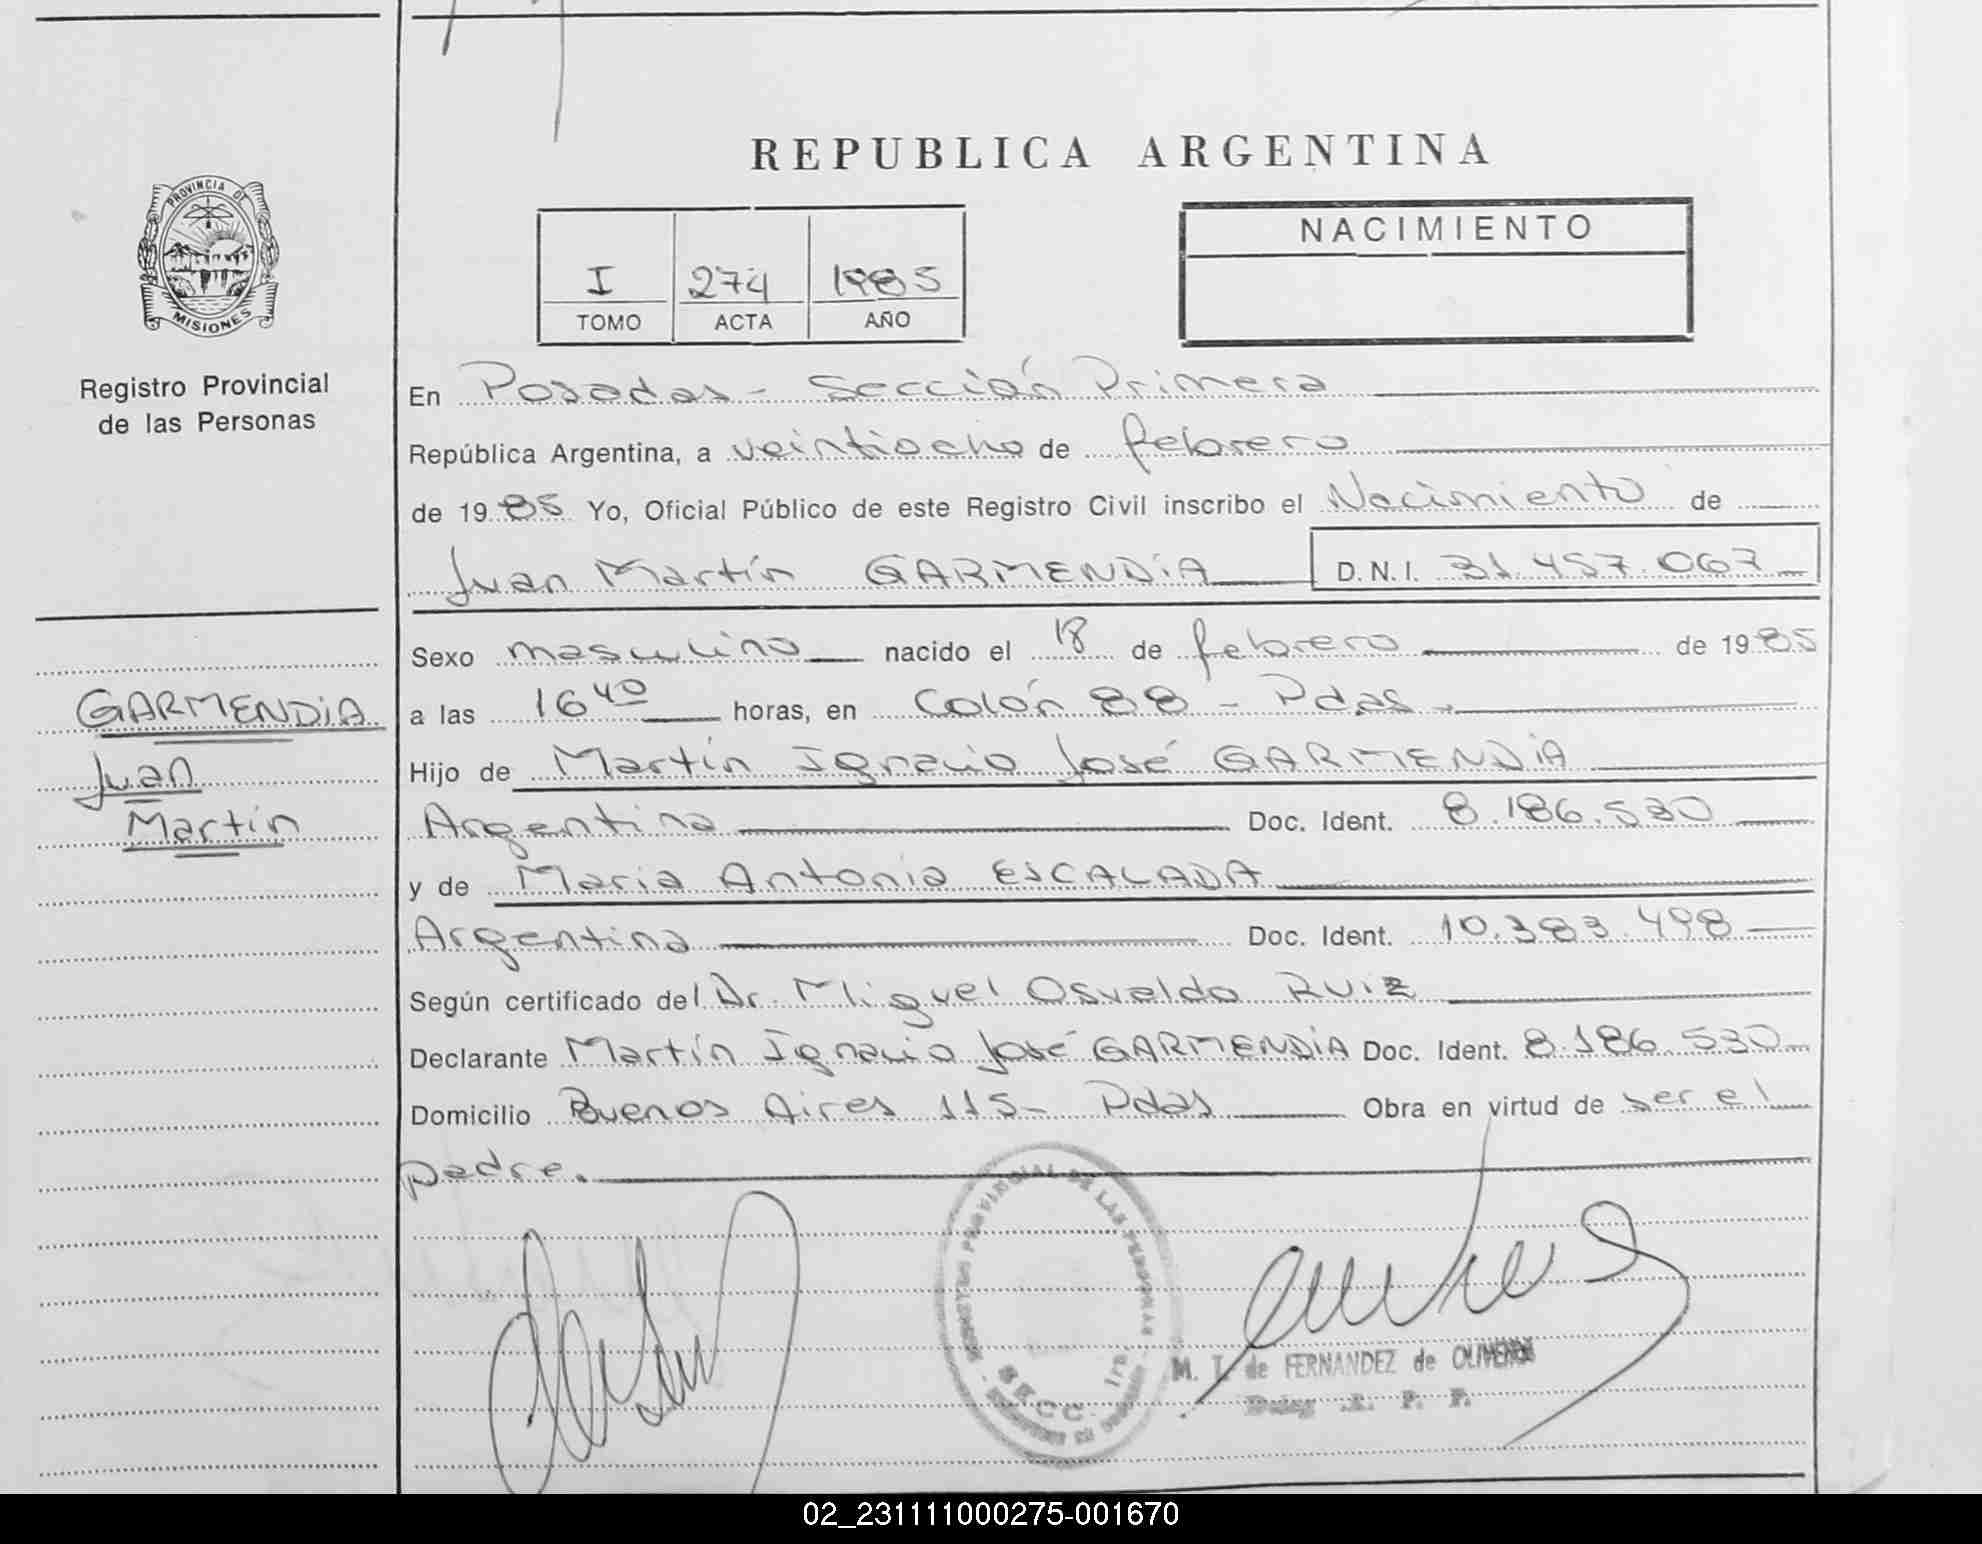 REPUBLICA ARGENTINA
PROVINCIA DE
MISIONES
Registro Provincial
de las Personas
I 274 1985
TOMO ACTA AÑO
NACIMIENTO
En Posadas - Sección Primera
República Argentina, a veintiocho de febrero
de 1985 Yo, Oficial Público de este Registro Civil inscribo el Nacimiento de
Juan Martín GARMENDIA D.N.I. 31.457.067
Sexo masculino nacido el 18 de febrero de 1985
a las 16 40 horas, en Colón 88 - Pdas.
Hijo de Martín Ignacio José GARMENDIA
Argentina Doc. Ident. 8.186.530
y de Maria Antonia ESCALADA
Argentina Doc. Ident. 10.383.498
Según certificado del Dr. Miguel Osvaldo Ruiz
Declarante Martín Ignacio José GARMENDIA Doc. Ident. 8.186.530
Domicilio Buenos Aires 115- Pdas Obra en virtud de ser el
padre.
GARMENDIA
Juan
Martín
PROVINCIAL DE LAS PERSONAS
SECC. 1ra.
M. T. de FERNANDEZ de OLIVERA
02_231111000275-001670